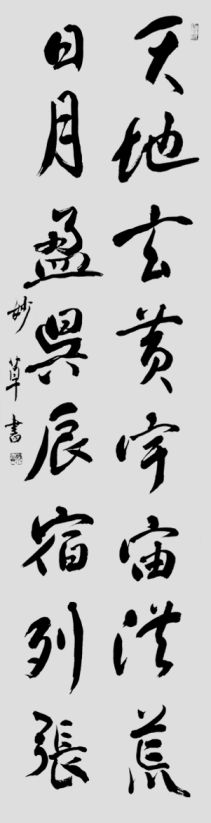 天地玄黄宇宙洪荒
日月盈昃辰宿列張
妙草書